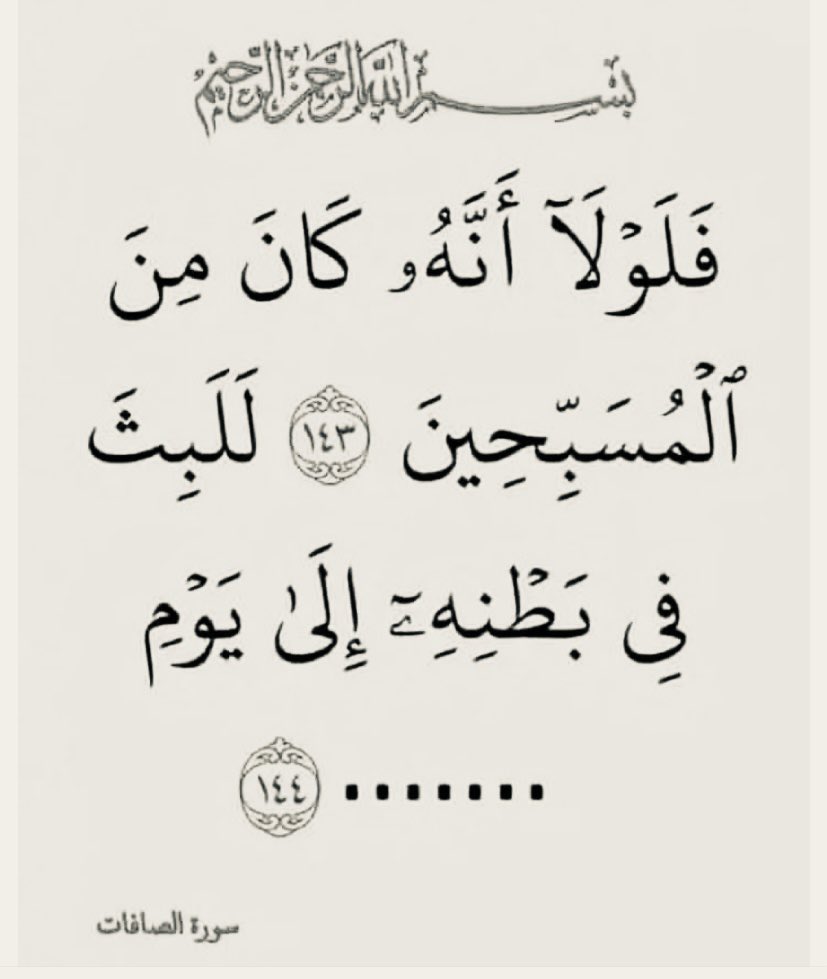 بسم الله الرحمن الرحيم
فَلَوْلَآ أَنَّهُۥ كَانَ مِنَ
ٱلْمُسَبِّحِينَ ١٤٣ لَلَبِثَ
فِى بَطْنِهِۦٓ إِلَىٰ يَوْمِ
....... ١٤٤
سورة الصافات